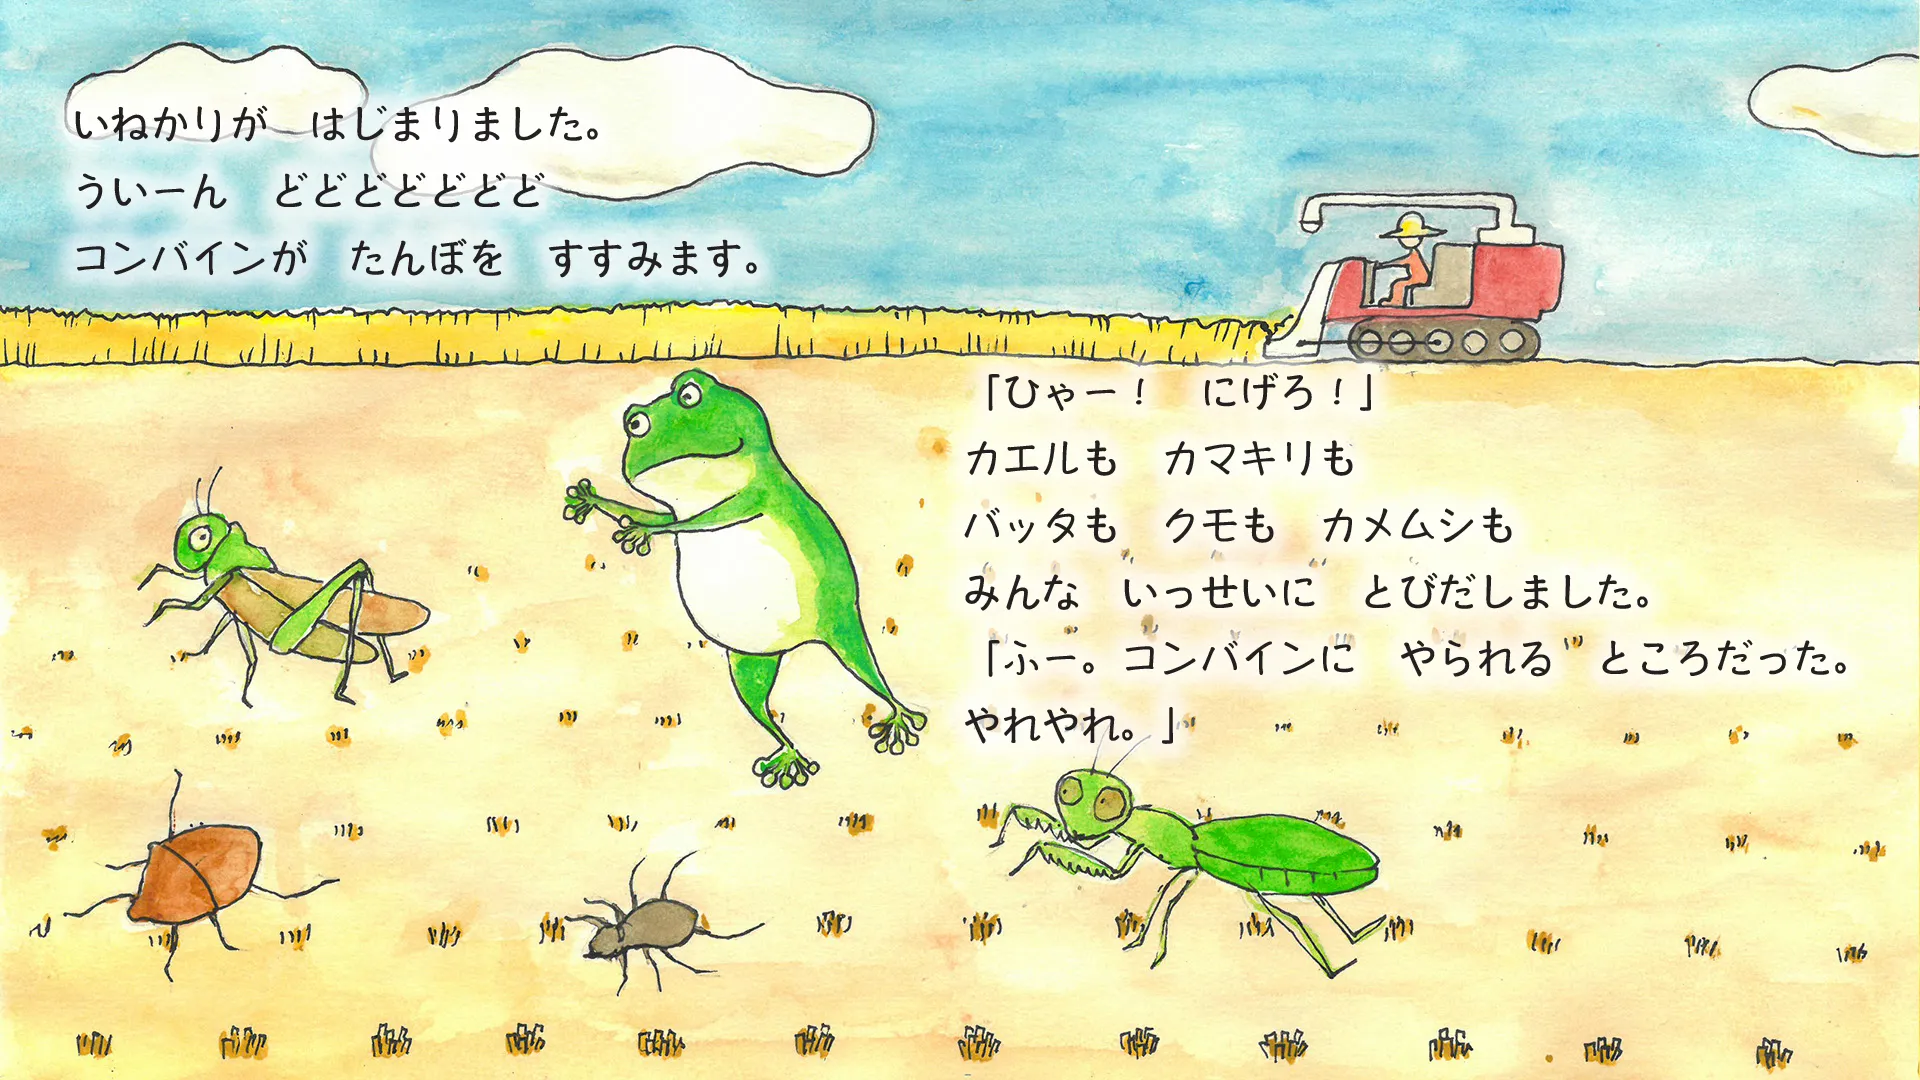 いねかりが　はじまりました。
ういーん　どどどどどどど
コンバインが　たんぼを　すすみます。
「ひゃー！　にげろ！」
カエルも　カマキリも
バッタも　クモも　カメムシも
みんな　いっせいに　とびだしました。
「ふー。コンバインに　やられる　ところだった。
やれやれ。」